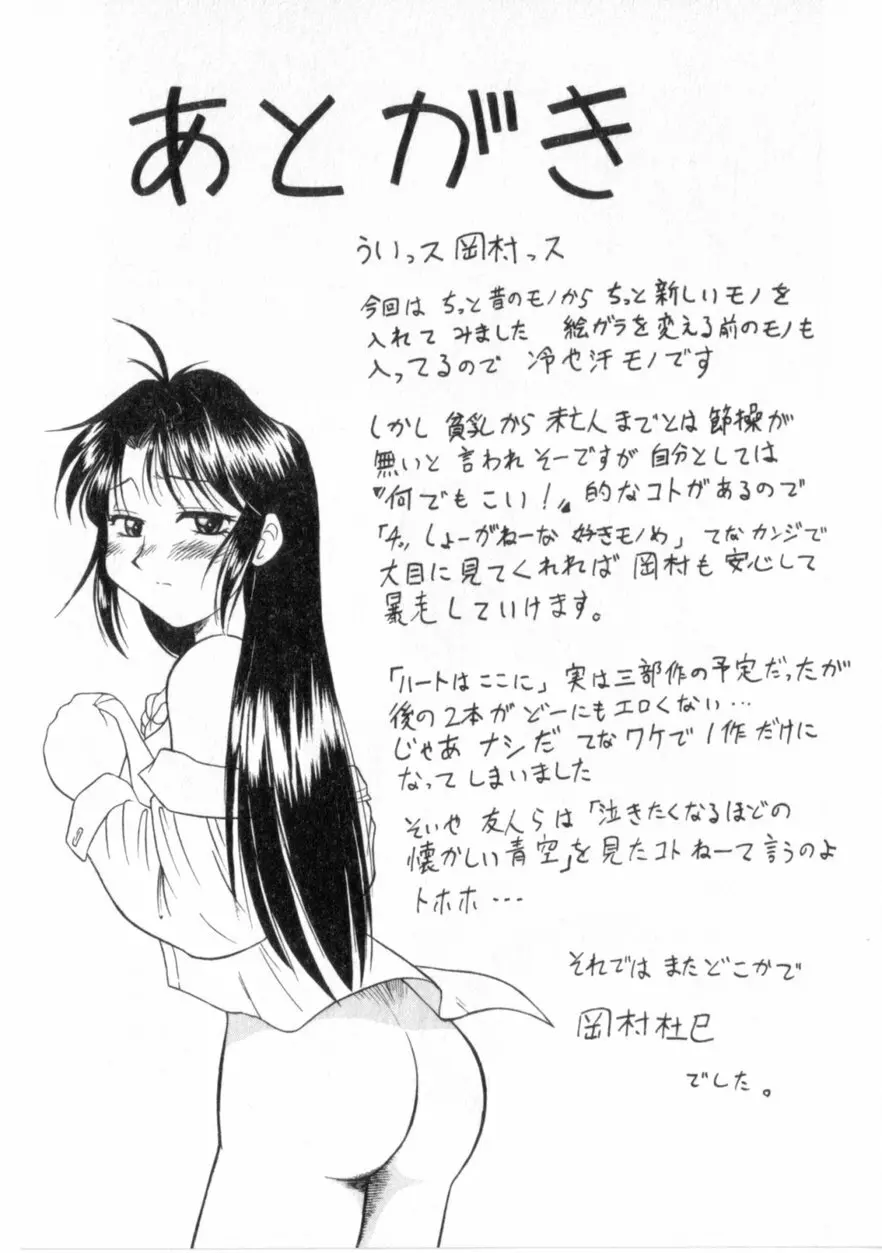 あとがき
ういっス岡村っス
今回は ちっと昔のモノから ちっと新しいモノを
入れて みました 絵ガラを変える前のモノも
入ってるので 冷や汗モノです
しかし 貧乳から 未亡人までとは 節操が
無いと 言われそーですが 自分としては
〝何でもこい!〟的なコトがあるので
「チッ しょーがねーな 好きモノめ」てなカンジで
大目に見てくれれば 岡村も 安心して
暴走していけます。
「ハートはここに」実は三部作の予定だったが
後の2本がどーにもエロくない…
じゃあ ナシだ てなワケで 1作だけに
なってしまいました
そいや 友人らは「泣きたくなるほどの
懐かしい青空」を見たコトねーて言うのよ
トホホ…
それでは またどこかで
岡村杜巳
でした。